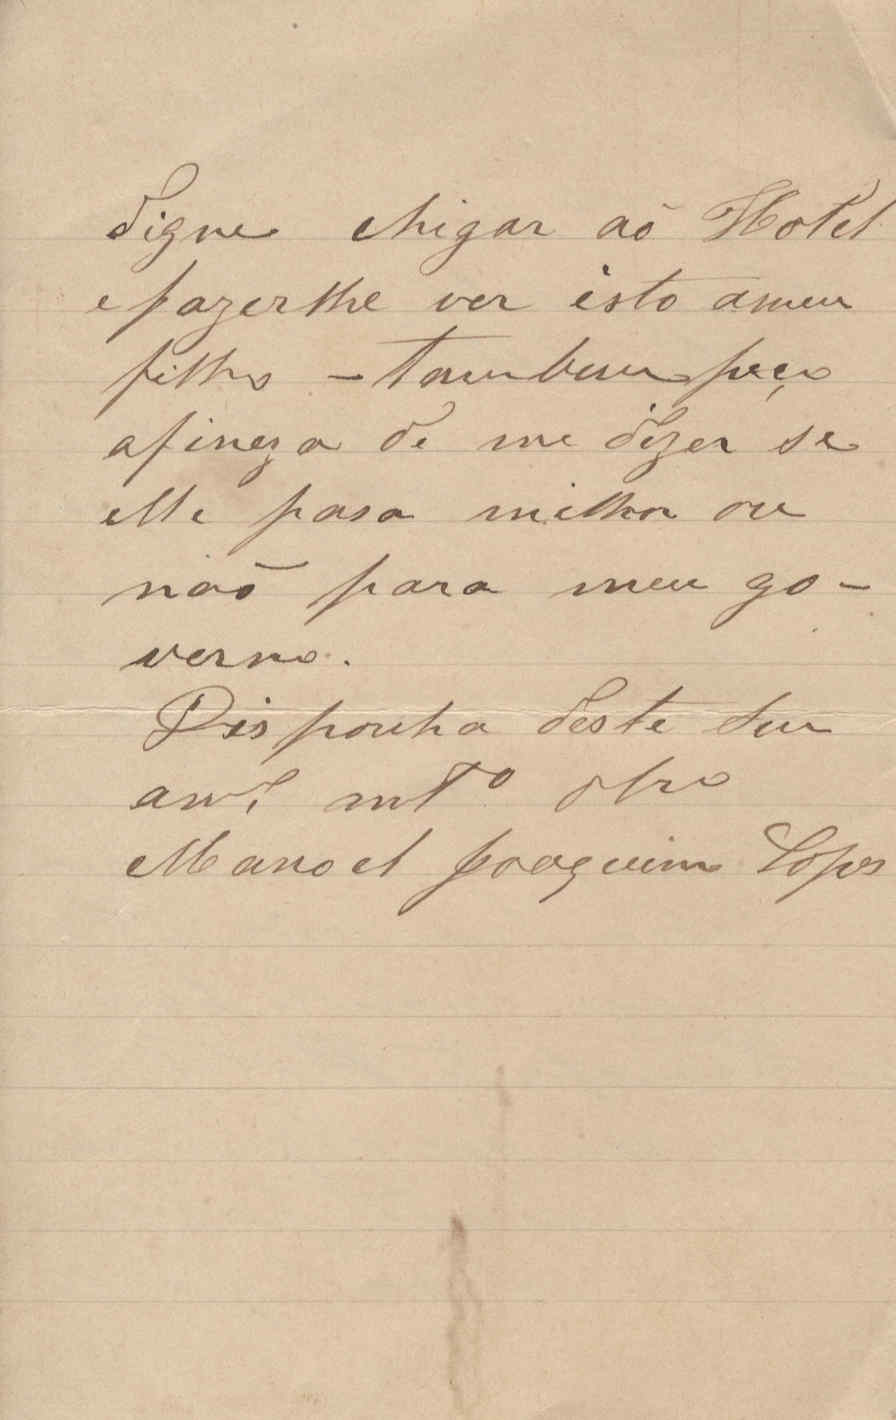 digne chigar aõ Hotel
e fazerlhe ver isto ameu
filho – tambem peço
afineza de me dizer se
elle pasa milhor ou
naõ para meu go-
verno.
Disponha deste seu
amº mtº obrº
Manoel Joaquim Lopes